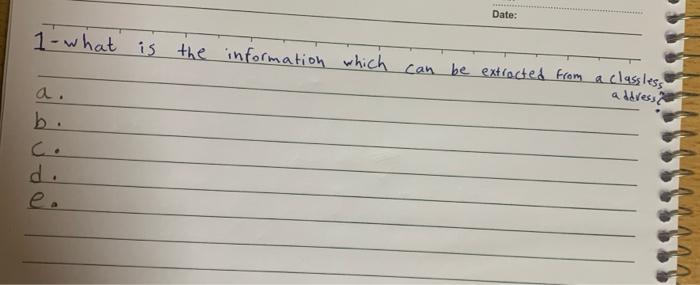 Date:
1-what is the information which can be extracted from a classless
address?
a.
b.
c.
d.
e.